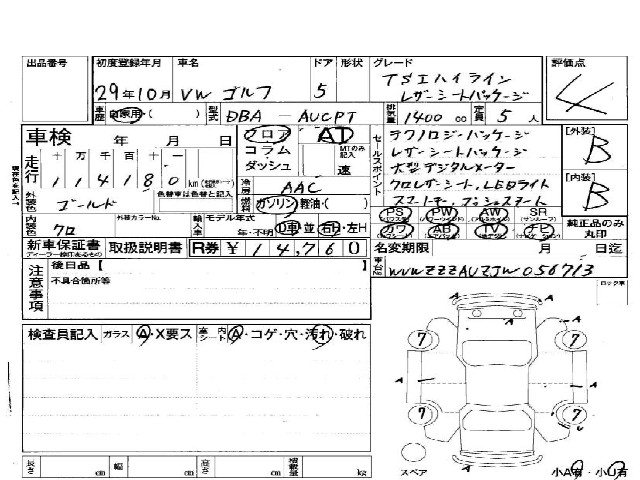 出品番号 初度登録年月 車名 ドア 形状 グレード 評価点
29年10月 VW ゴルフ 5 TSIハイライン
レザーシートパッケージ
4
車歴 自家用・( ) 型式 DBA — AUCPT 排気量 1400cc 定員 5人
車検 年 月 日 フロア AT
コラム MTのみ記入
ダッシュ 速
走行 十 万 千 百 十 一
114180 km
冷房 AAC
外装色 ゴールド 色替車は色替と記入
燃料 ガソリン 軽油・( )
セールスポイント テクノロジーパッケージ
レザーシートパッケージ
大型デジタルメーター
クロレザーシート、LEDライト
スマートキー、プッシュスタート
[外装] B
[内装] B
PS PW AW SR
カワ AB TV ナビ
純正品のみ丸印
内装色 クロ 外装カラーNo. 輸入車 モデル年式 年・不明 D車・並 右H・左H
新車保証書 取扱説明書 R券 ¥14,760
名変期限 月 日迄
注意事項 後日品【
不具合箇所等
車台No WVWZZZAUZJW056713
ロック有
検査員記入 ガラス A・X要ス 室内シート A・コゲ・穴・汚れ・破れ
A A
7 7
A A
7 7
A
スペア 小A有・小U有
長さ cm 幅 cm 高さ cm 積載量 kg